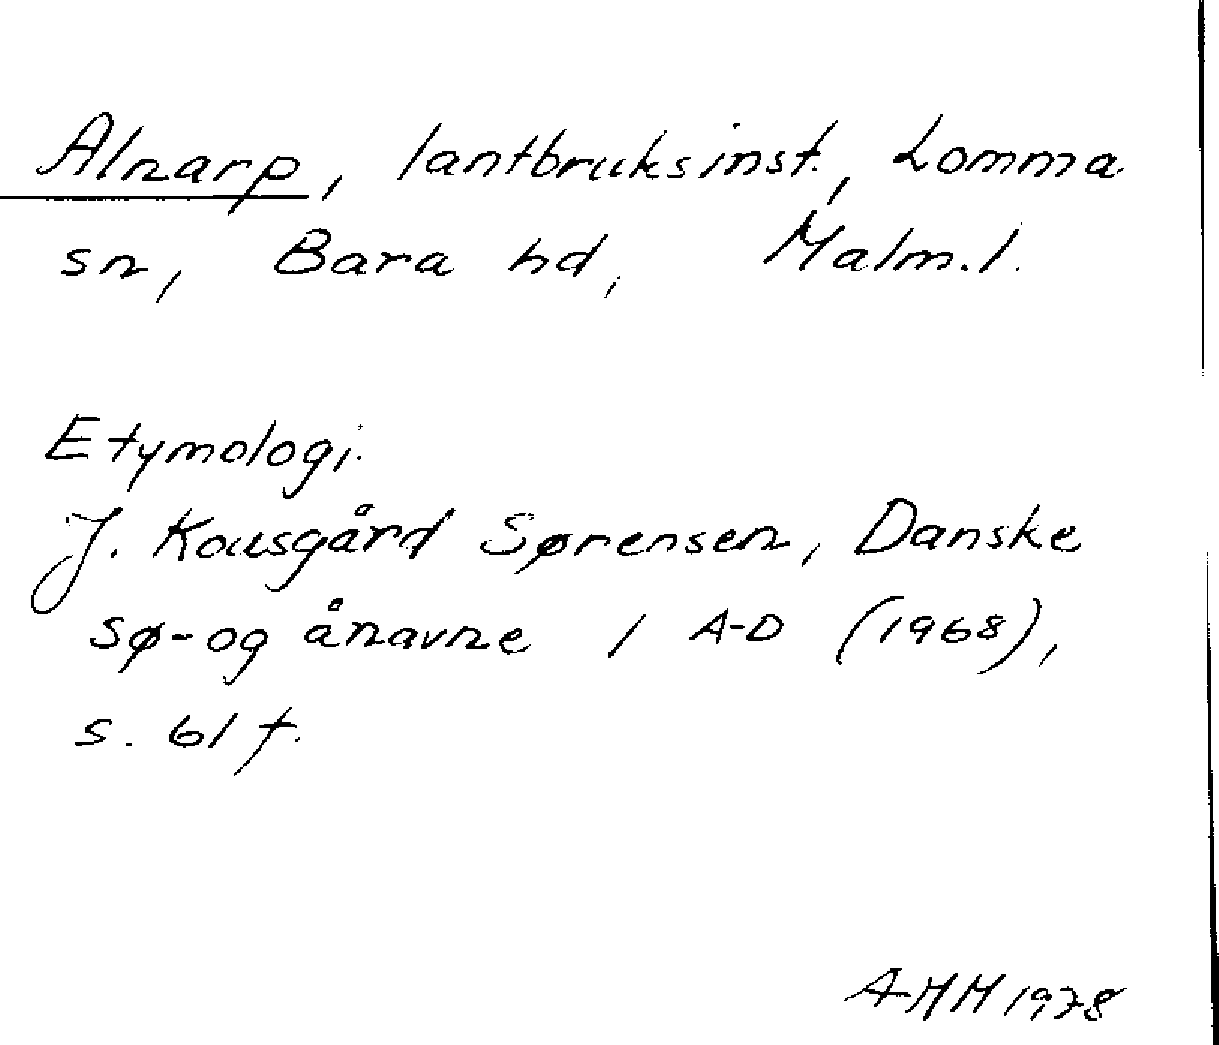 Alnarp, lantbruksinst., Lomma
sn, Bara hd, Malm.l.
Etymologi.
J. Kousgård Sørensen, Danske
sø- og ånavne 1 A-D (1968),
s. 61 f.
AHH 1978